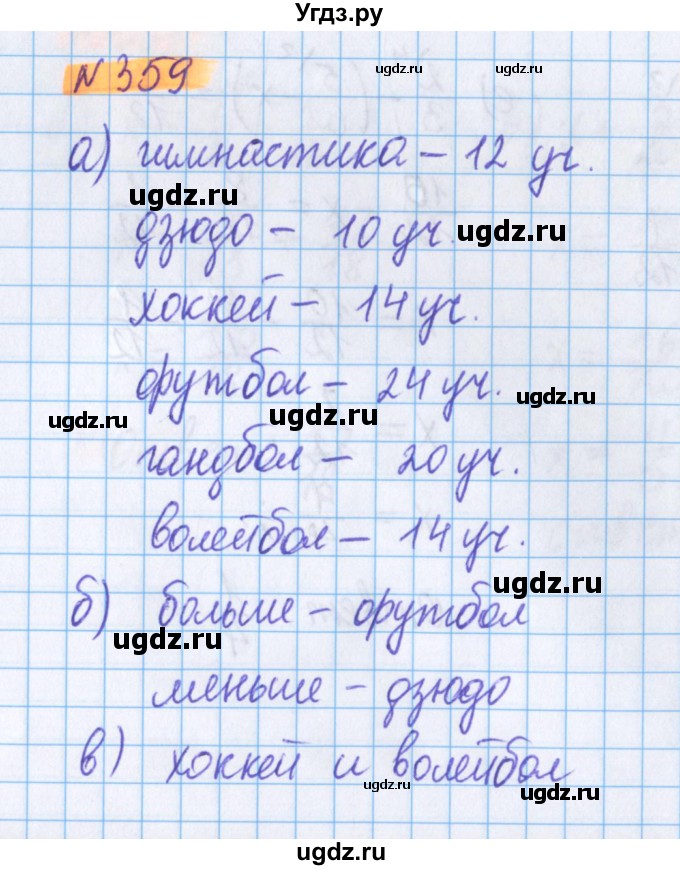 Угдз.ру
N 359
ugdz.ru
а) гимнастика – 12 уч.
ugdz.ru
дзюдо – 10 уч.
ugdz.ru
хоккей – 14 уч.
футбол – 24 уч.
ugdz.ru
ugdz.ru
ugdz.ru
гандбол – 20 уч.
волейбол – 14 уч.
ugdz.ru
б) больше – футбол
ugdz.ru
меньше – дзюдо
в) хоккей и волейбол
ugdz.ru
ugdz.ru
ugdz.ru